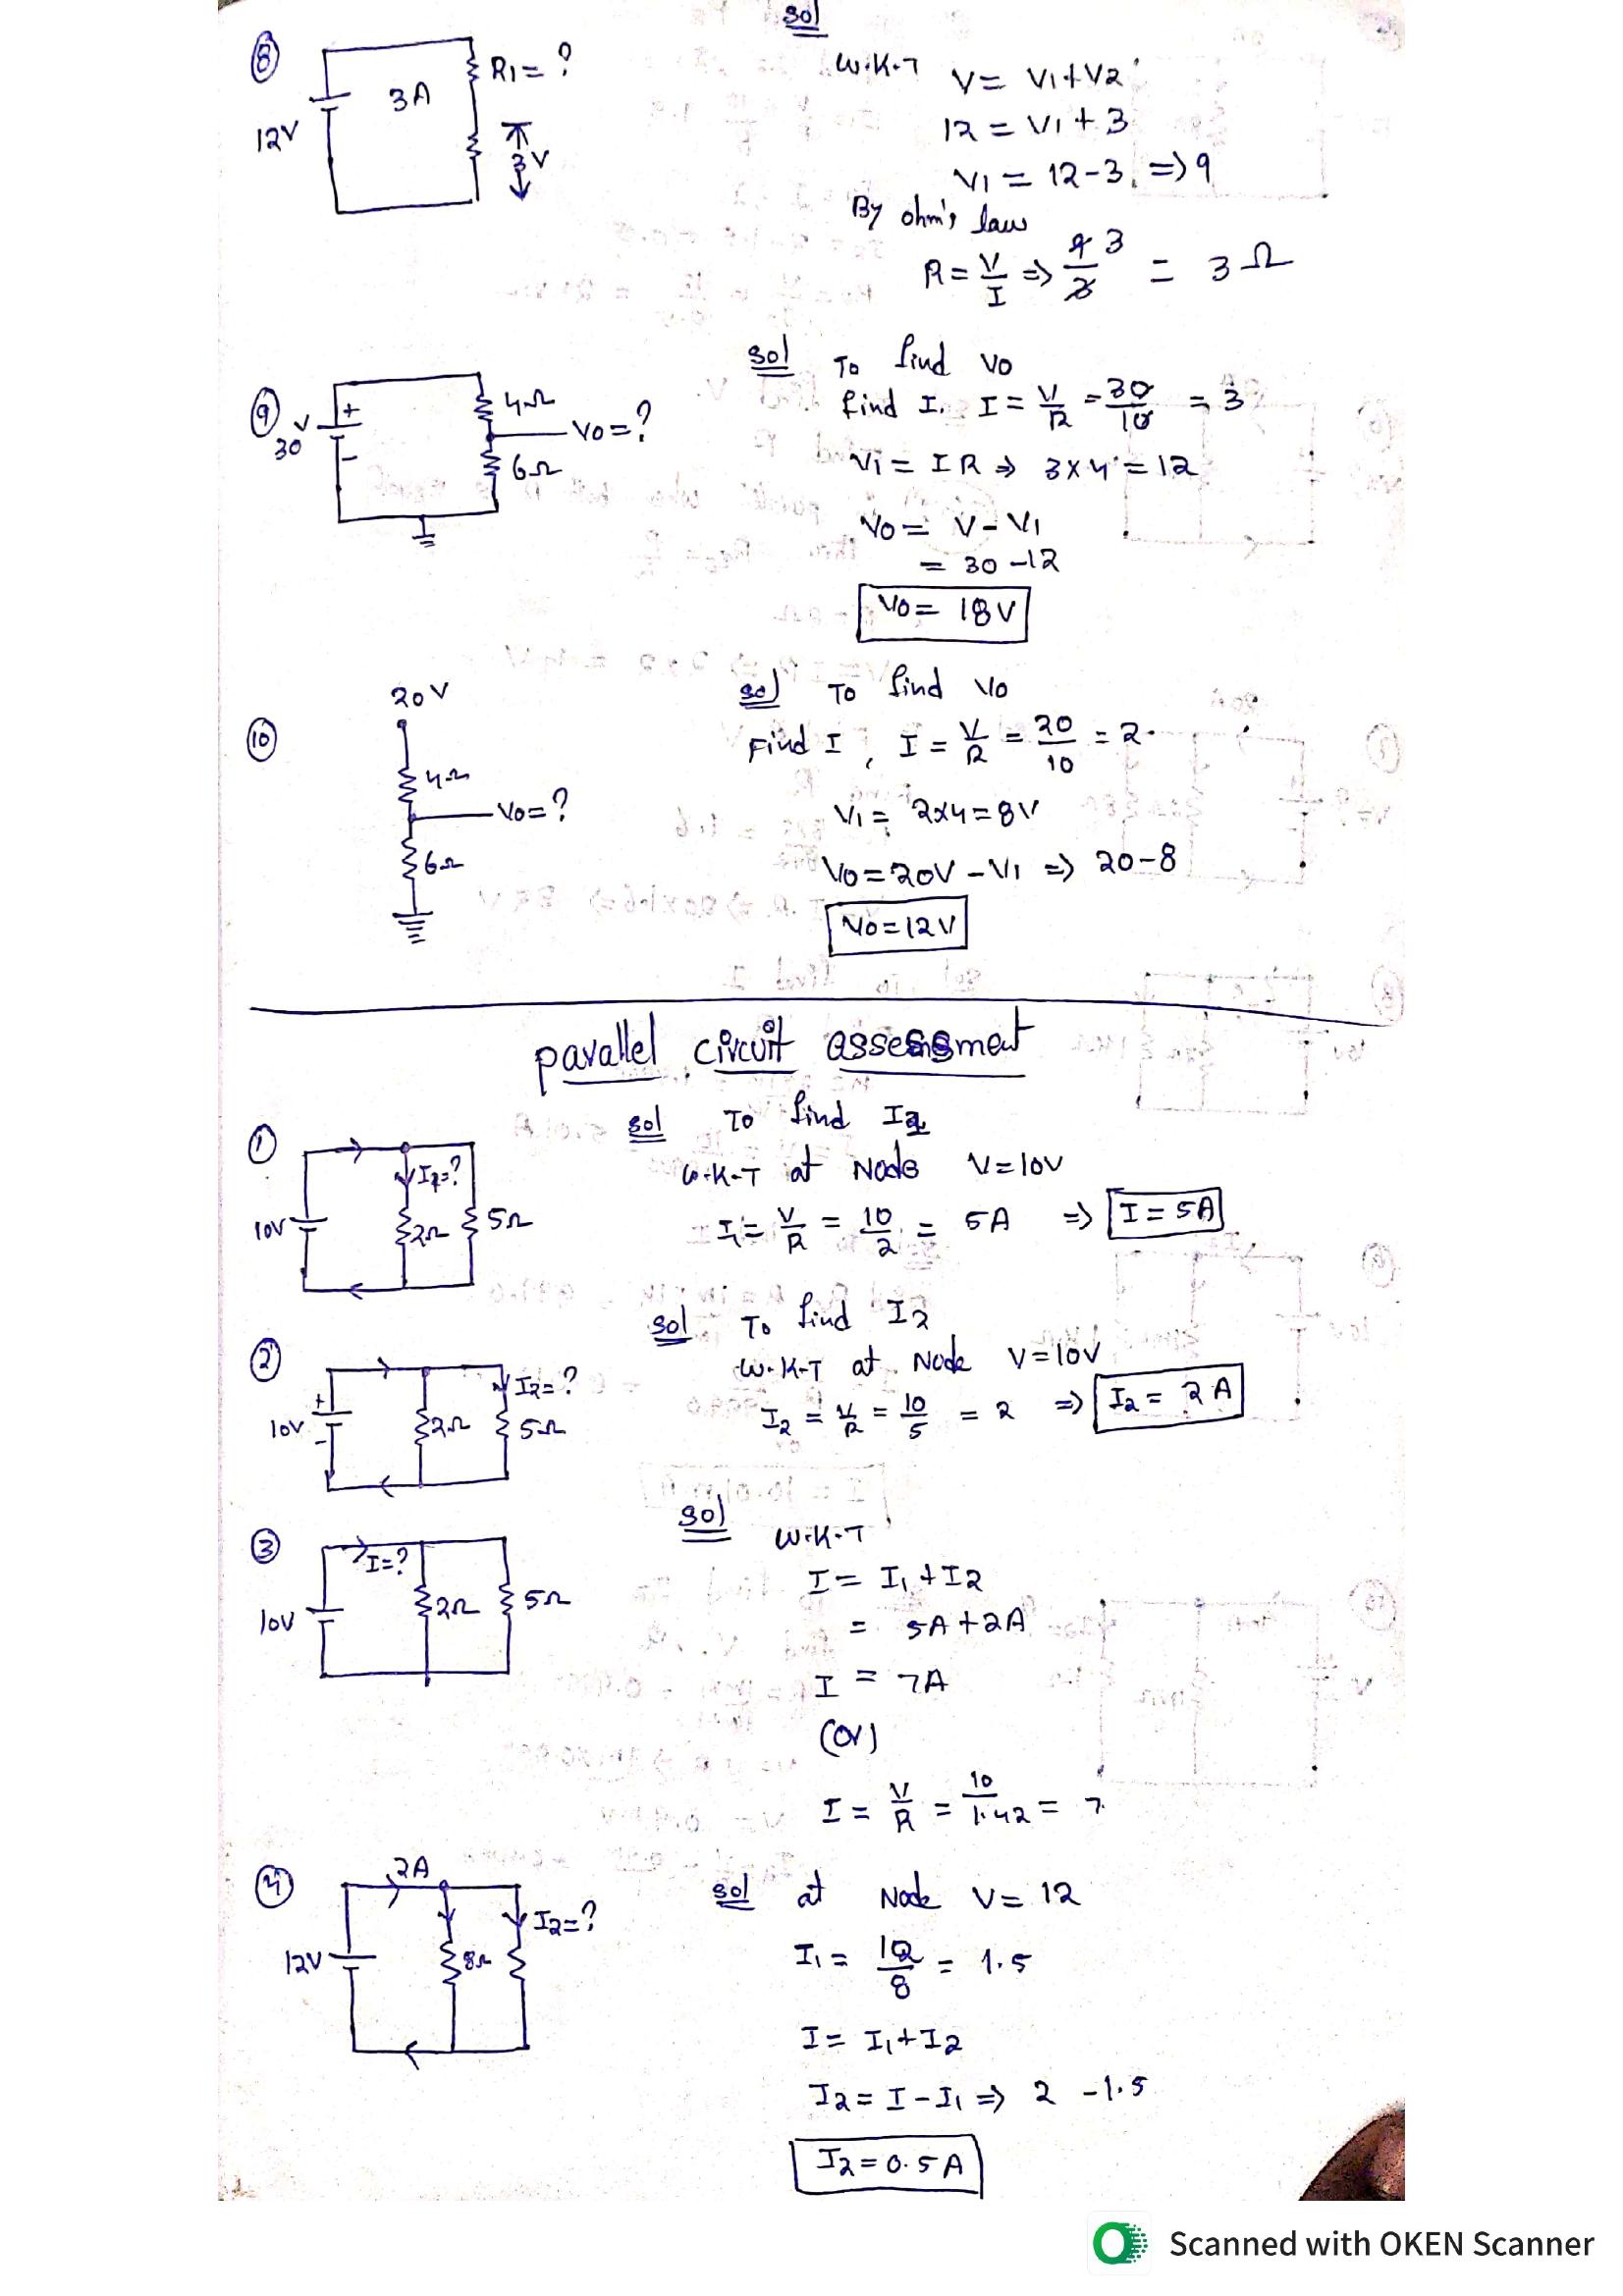 8
12V
3A
R1 = ?
3V
Sol
W.K.T V = V1+V2
12 = V1 + 3
V1 = 12-3 => 9
By ohm's law
R = V/I => 9/3 3 = 3 Ω
9
30 V
+
-
4Ω
Vo = ?
6Ω
Sol To find Vo
find I. I = V/R = 30/10 = 3
Vi = IR => 3x4 = 12
Vo = V - V1
= 30 -12
Vo = 18V
10
20V
4Ω
Vo = ?
6Ω
Sol To find Vo
Find I, I = V/R = 20/10 = 2.
V1 = 2x4 = 8V
Vo = 20V - V1 => 20-8
Vo = 12V
parallel circuit assessment
1
10V
2Ω
5Ω
Sol To find
W.K.T at Node V = 10V
I1 = V/R = 10/2 = 5A => I = 5A
2
10V
+
-
2Ω
I2 = ?
5Ω
Sol To find I2
W.K.T at Node V = 10V
I2 = V/R = 10/5 = 2 => I2 = 2A
3
I = ?
10V
2Ω
5Ω
Sol
W.K.T
I = I1 + I2
= 5A + 2A
I = 7A
(or)
I = V/R = 10/1.42 = 7.
4
2A
12V
8Ω
I2 = ?
Sol at Node V = 12
I1 = 12/8 = 1.5
I = I1 + I2
I2 = I - I1 => 2 - 1.5
I2 = 0.5A
Scanned with OKEN Scanner